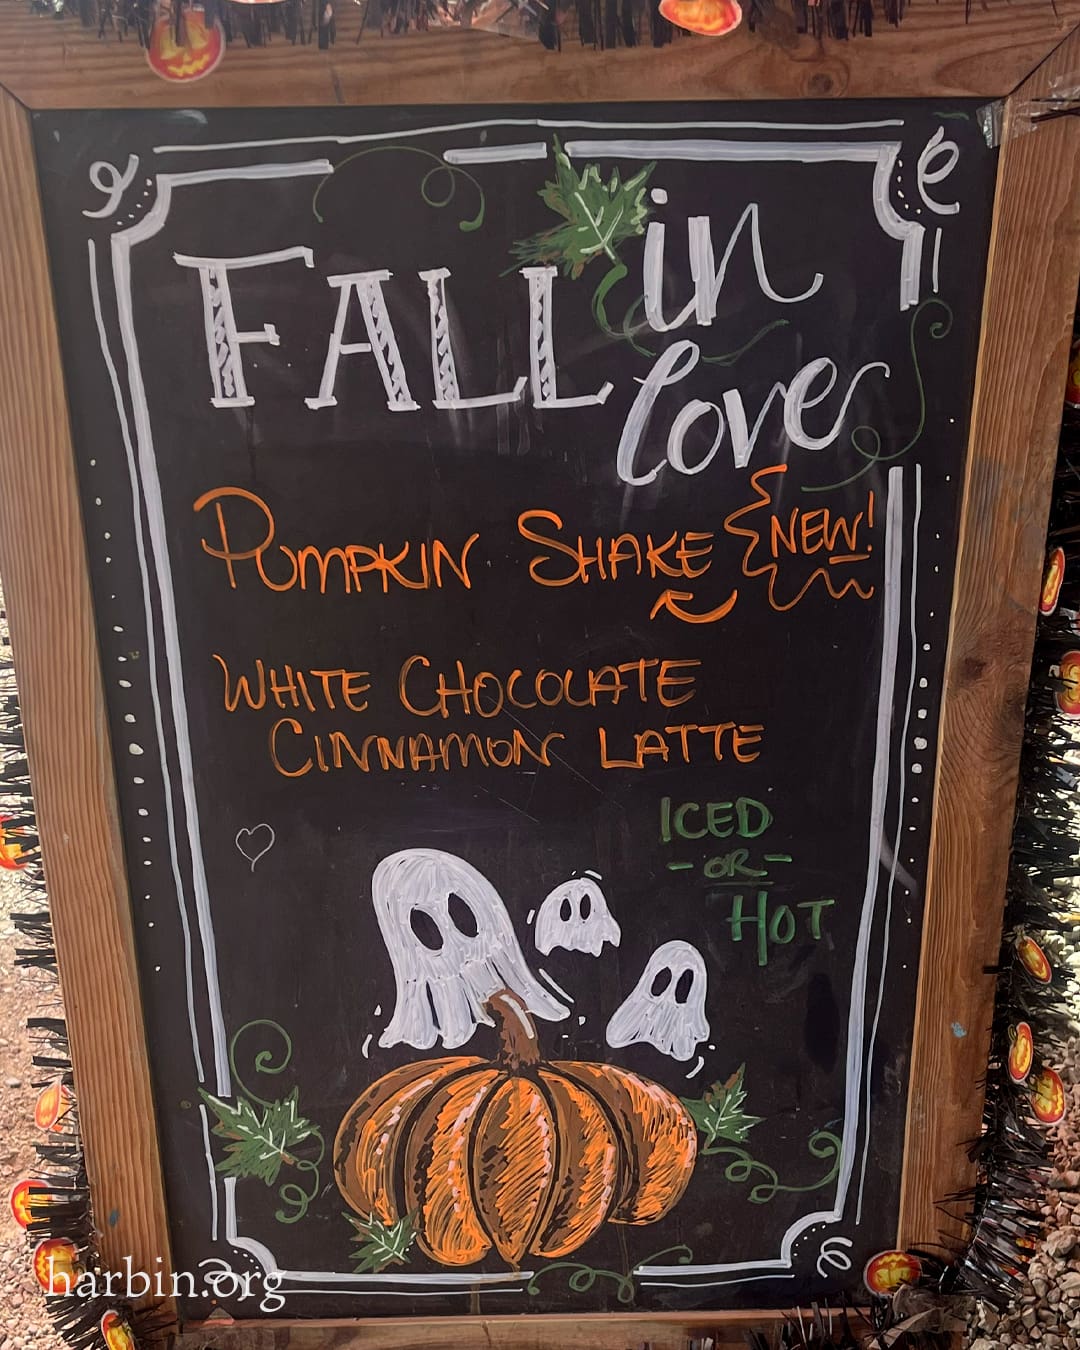 FALL in
love
PUMPKIN SHAKE NEW!
WHITE CHOCOLATE
CINNAMON LATTE
ICED
-OR-
HOT
harbin.org